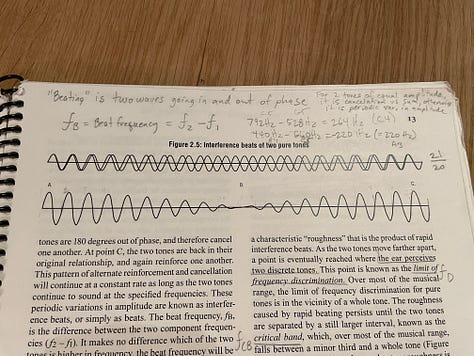 "Beating" is two waves going in and out of phase
For 2 tones of equal amplitude,
it is cancelation vs sum, otherwise
it is periodic var. in amplitude
fB = Beat frequency = f2 - f1
792Hz - 528Hz = 264Hz (C4)
13
440Hz - 660Hz = -220Hz (=220Hz)
A3
Figure 2.5: Interference beats of two pure tones
21
20
A
B
C
tones are 180 degrees out of phase, and therefore cancel
one another. At point C, the two tones are back in their
original relationship, and again reinforce one another.
This pattern of alternate reinforcement and cancellation
will continue at a constant rate as long as the two tones
continue to sound at the specified frequencies. These
periodic variations in amplitude are known as interfer-
ence beats, or simply as beats. The beat frequency, fB,
is the difference between the two component frequen-
cies (f2 – f1). It makes no difference which of the two
tones is higher in frequency, the beat frequency will be
a characteristic "roughness" that is the product of rapid
interference beats. As the two tones move farther apart,
a point is eventually reached where the ear perceives
two discrete tones. This point is known as the limit of
frequency discrimination. Over most of the musical
range, the limit of frequency discrimination for pure
tones is in the vicinity of a whole tone. The roughness
caused by rapid beating persists until the two tones
are separated by a still larger interval, known as the
critical band, which, over most of the musical range,
falls between a minor third and a whole tone (Figure
fD
fCB